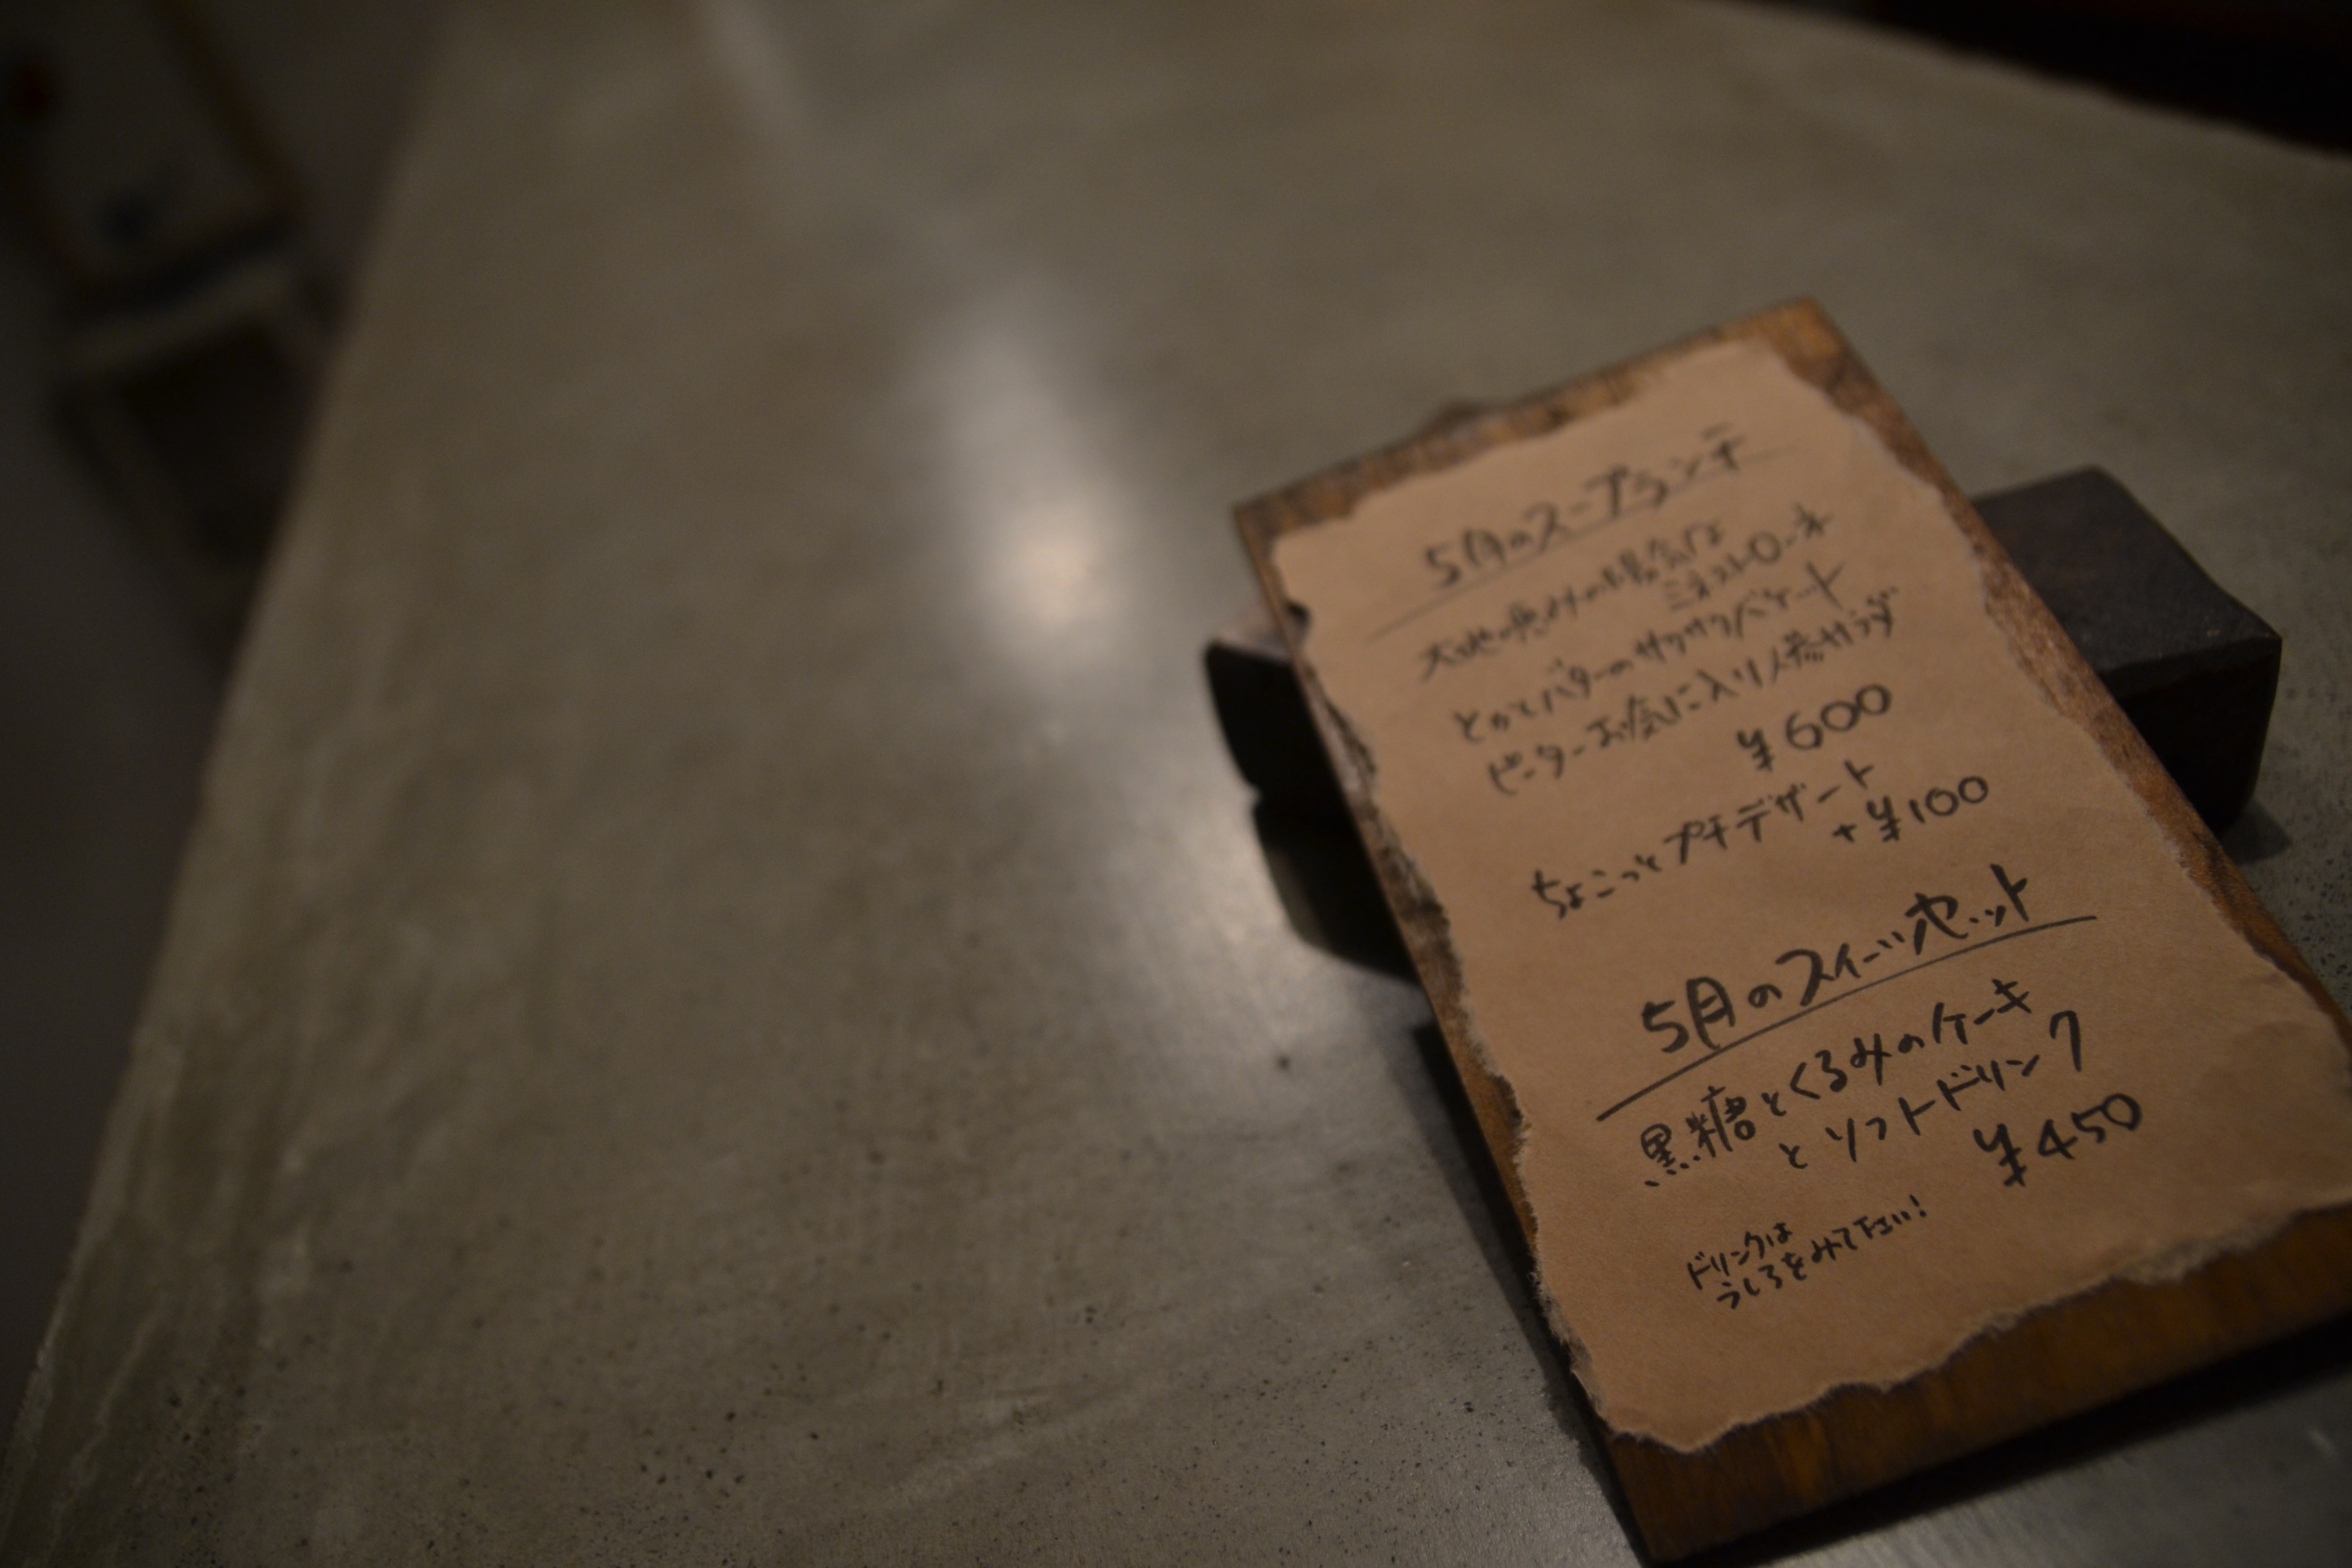 5月のスープランチ
大地の恵みの陽気な
ミネストローネ
とかとバターのサクサクバケット
ピーターお気に入り人参サラダ
¥600
ちょこっとプチデザート
+¥100
5月のスイーツセット
黒糖とくるみのケーキ
とソフトドリンク
¥450
ドリンクは
うしろをみて下さい!